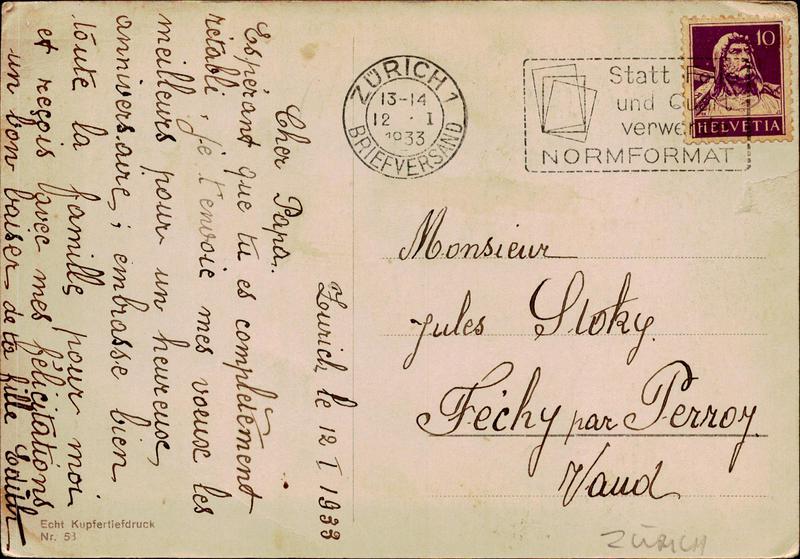 Zürich, le 12 I 1933
Cher Papa.
Espérant que tu es complètement
rétabli, je t'envoie mes voeux les
meilleurs pour un heureux
anniversaire; embrasse bien
toute la famille pour moi
et reçois avec mes félicitations
un bon baiser de ta fille Edith
Echt Kupfertiefdruck
Nr. 53
ZÜRICH 1
13-14
12 . I
1933
BRIEFVERSAND
Statt
und
NORMFORMAT
10
HELVETIA
Monsieur
Jules Stoky.
Féchy par Perroy
Vaud
ZÜRICH